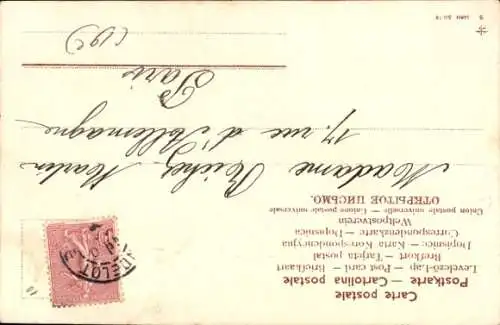 Carte postale
Postkarte — Cartolina postale
Levelező-Lap — Post card — Briefkaart
Brefkort — Tarjeta postal
Dopisnice — Karta Korespondencyjna
Correspondenzkarte — Dopisnica
Weltpostverein
Union postale universelle — Unione postale universale
ОТКРЫТОЕ ПИСЬМО.
Madame Richez Martin
17, rue d'Allemagne
Paris
(19e)